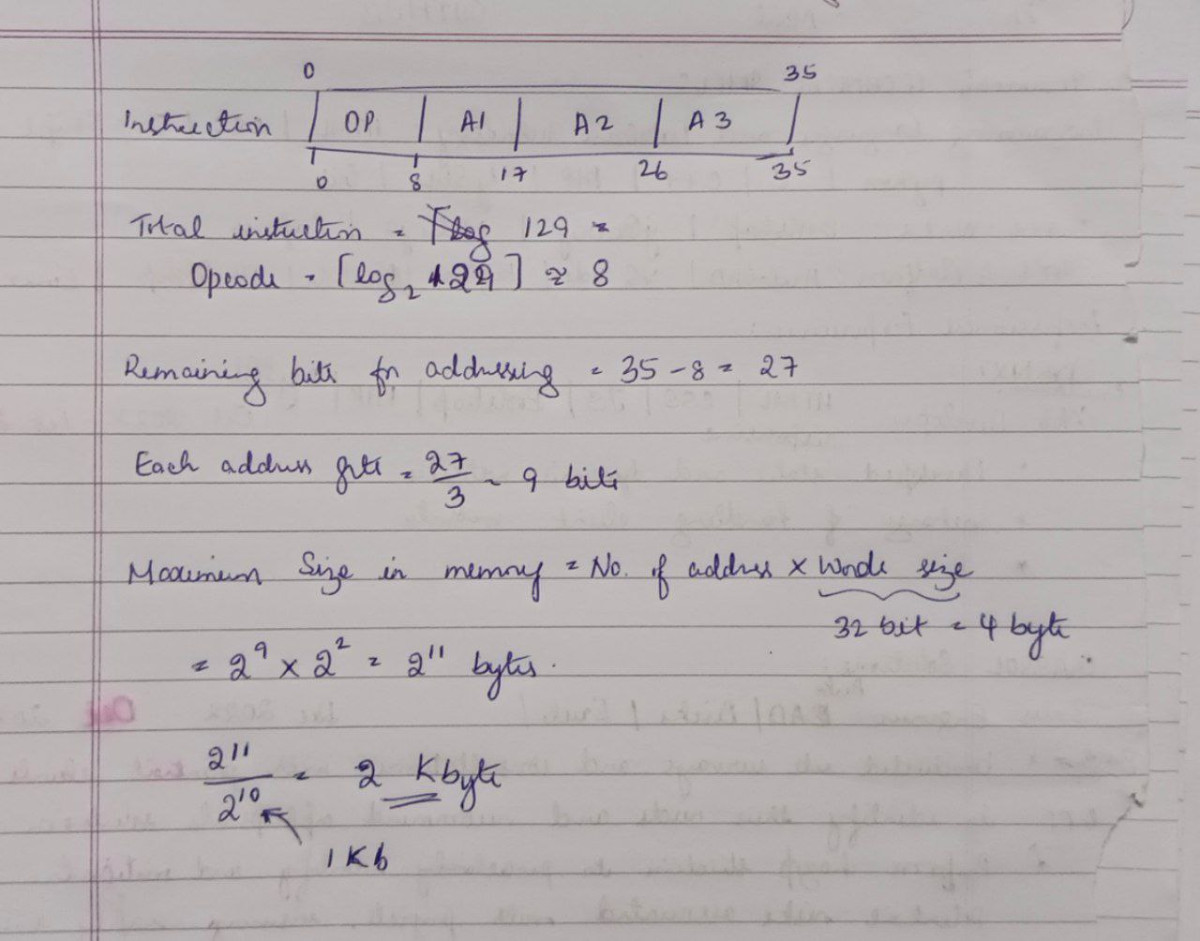 0 35
Instruction OP A1 A2 A3
0 8 17 26 35
Total instuction = 129 =
Opcode = ⌈log₂ 129⌉ ≈ 8
Remaining bits for addressing = 35 - 8 = 27
Each address gets = 27/3 = 9 bits
Maximum Size in memory = No. of address × Words size
32 bit = 4 byte
= 2⁹ × 2² = 2¹¹ bytes.
2¹¹/2¹⁰ = 2 Kbyte
1 Kb